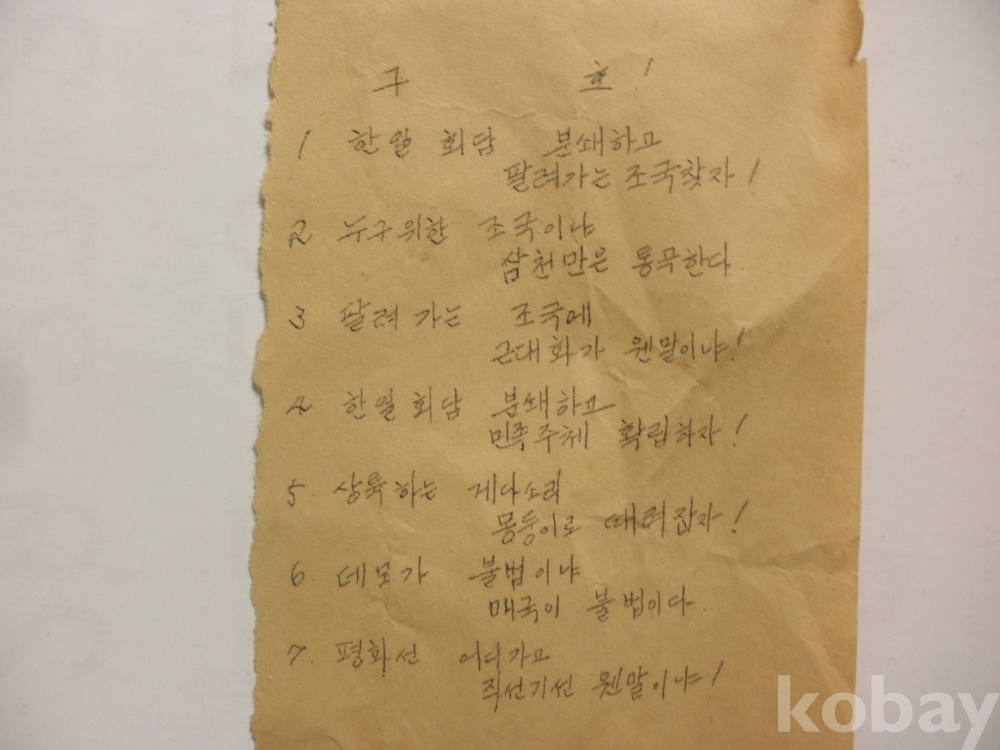 구 호!
1 한일 회담 분쇄하고
팔려가는 조국찾자!
2 누구위한 조국이냐
삼천만은 통곡한다.
3 팔려 가는 조국에
근대화가 웬말이냐!
4 한일 회담 분쇄하고
민족주체 확립하자!
5. 상륙하는 게다소리
몽둥이로 때려잡자!
6. 데모가 불법이냐
매국이 불법이다.
7. 평화선 어디가고
직선기선 웬말이냐!
kobay